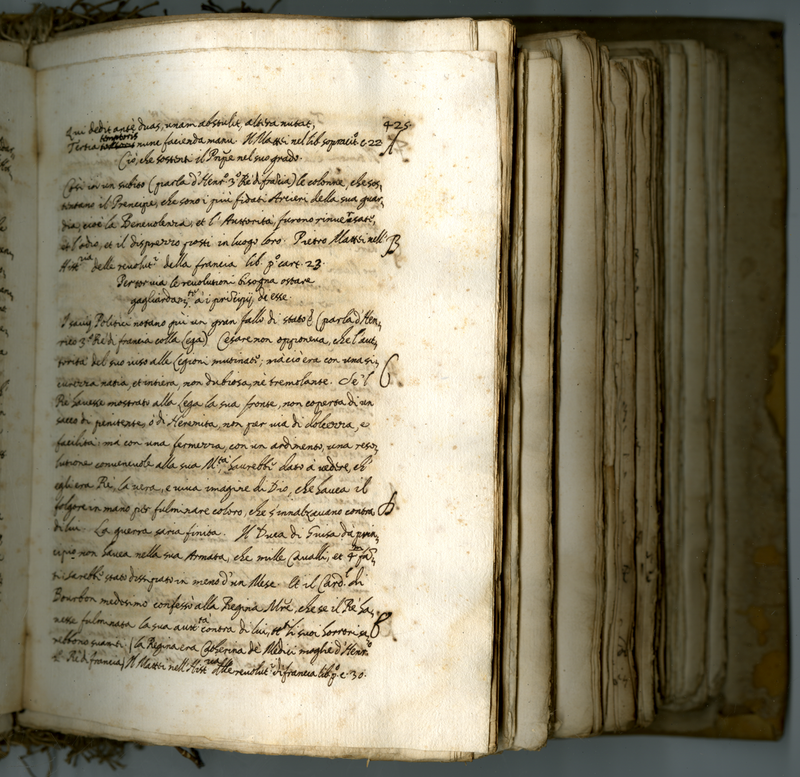 425
Qui dedit ante duas, unam abstulit, altera nutat,
tonsoris
Tertia nunc facienda manu. Il Mattei nel lib. sopracit.o c. 22 A
Ciò, che sostenti il Prn̄pe nel suo grado.
Così in un subito (parla d'Henr.o 3.o Rè di francia) le colonne, che sos,
tentano il Prencipe, che sono i più fidati Arcieri della sua guar,
dia, cioè la Benevolenza, et l'Auttorità, furono rinversate,
et l'odio, et il disprezzo posti in luogo loro. Pietro Mattei nell' B
Hist.ria delle revolut.i della francia lib. p.o cart. 23.
Per ovviar le revolutioni bisogna ostare
gagliardam.te a i principij, de esse.
I savij Politici notano qui un gran fallo di stato (parla d'Hen,
rico 3.o Rè di francia colla lega) Cesare non opponeva, che l'aut,
torità del suo viso alle legioni mutinate; ma ciò era con una si,
curezza natia, et intiera, non dubiosa, ne tremolante. Se 'l C
Rè havesse mostrato alla lega la sua fronte, non coperta di un
sacco di penitente, ò di Heremita, non per via di dolcezza, e
facilità; ma con una fermezza, con un ardimento, una reso,
lutione convenevole alla sua M.tà, haurebbe dato à vedere, ch'
egli era Rè, la vera, e viva imagine di Dio, che havea il
folgore in mano per fulminare coloro, che s'innalzavano contra D
di lui. La guerra saria finita. Il Duca di Guisa da prin,
cipio non havea nella sua Armata, che mille Cavalli, et 4.m fa
ti sarebbe stato dissipato in meno d'un Mese. Et il Card.l di
Bourbon medesimo confessò alla Regina Mr̄e, che se il Rè ha,
vesse fulminata la sua autt.tà contra di lui, tt.i li suoi horrori sa, E
rebbono svaniti (la Regina era Catherina de Medici moglie d'Henr.o
2. Rè di francia) Il Mattei nell'Hist.ria delle revolut.i di francia lib. p.o c. 30.